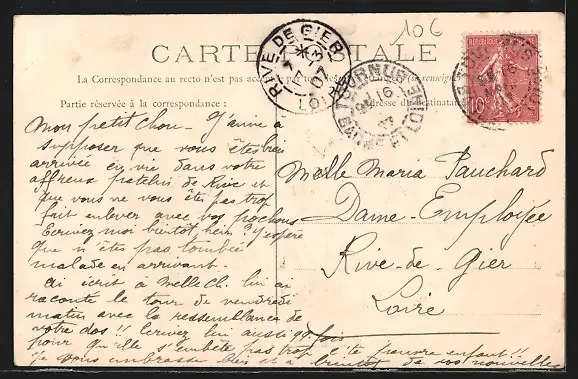 106
CARTE POSTALE
La Correspondance au recto n'est pas acc
Partie réservée à la correspondance :
Adresse du destinataire
RIVE DE GIER
LOIRE
07
TOURNUS
SAONE ET LOIRE
16
REPUBLIQUE
10c
Mon petit Chou - J'aime à
supposer que vous êtes bien
arrivée en vie dans votre
affreux patelin de Rive et
que vous ne vous êtes pas trop
fait enlever avec vos pochons
Ecrivez moi bientôt, hein? J'espère
que n'êtes pas tombée
malade en arrivant.
ai écrit à Melle Ch. lui ai
raconté le tour de vendredi
matin avec la ressemblance de
votre dos!! Ecrivez lui aussi qq. fois
pour qu'elle s'embête pas trop, c'te pauvre enfant!!
Je vous embrasse bien et à bientôt de vos nouvelles
Melle Maria Pauchard
Dame-Employée
Rive-de-Gier
Loire